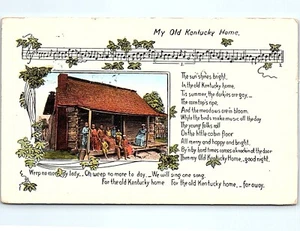 My Old Kentucky Home.
The sun shines bright,
In the old Kentucky home,
Tis summer, the darkies are gay, —
The corn top's ripe,
And the meadows are in bloom.
While the birds make music all the day
The young folks roll
On the little cabin floor
All merry and happy and bright,
By'n by hard times comes a knockin at the door
Then my Old Kentucky Home, good night.
Weep no more my lady, Oh weep no more to day, We will sing one song,
For the old Kentucky home For the old Kentucky home, far away.